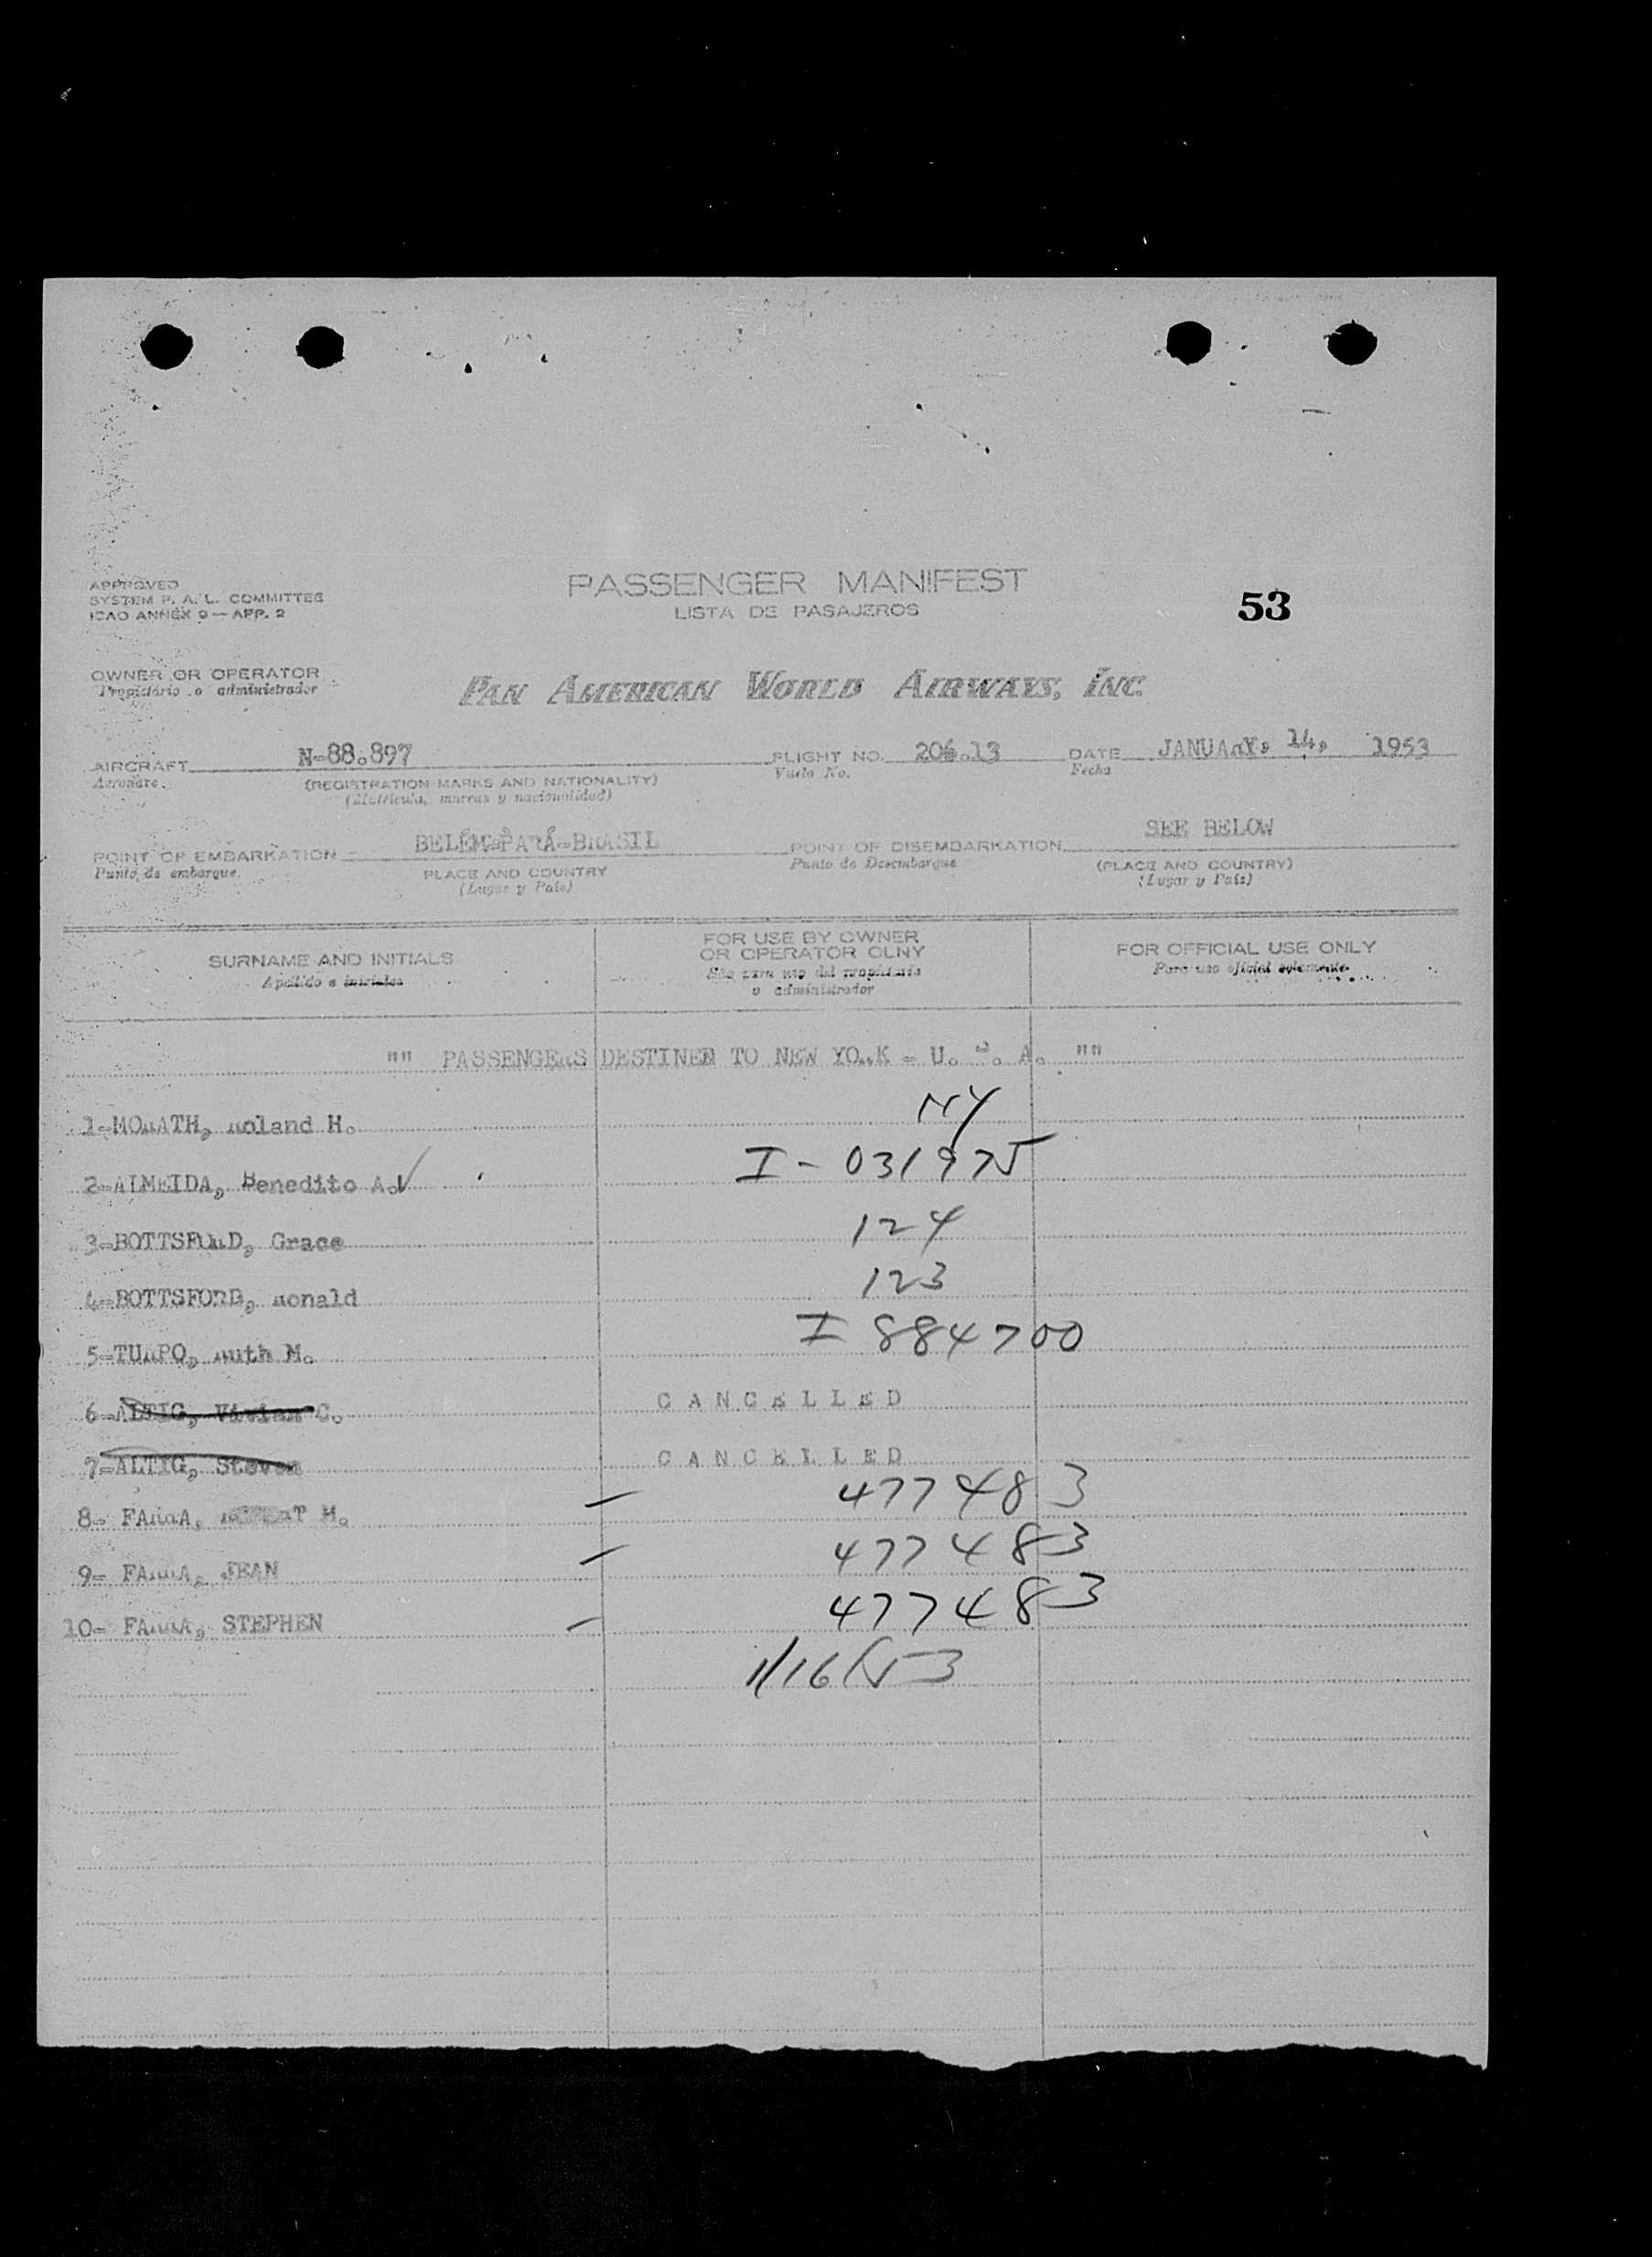 APPROVED
SYSTEM F. A. L. COMMITTEE
ICAO ANNEX 9 — APP. 2
PASSENGER MANIFEST
LISTA DE PASAJEROS
53
OWNER OR OPERATOR
Propietário o administrador
PAN AMERICAN WORLD AIRWAYS, INC.
AIRCRAFT N-88.897 FLIGHT NO. 206.13 DATE JANUARY, 14, 1953
Aeronave. (REGISTRATION MARKS AND NATIONALITY) Vuelo No. Fecha
(Matrícula, marcas y nacionalidad)
POINT OF EMBARKATION BELÉM-PARÁ-BRASIL POINT OF DISEMBARKATION SEE BELOW
Punto de embarque. PLACE AND COUNTRY Punto de Desembarque (PLACE AND COUNTRY)
(Lugar y País) (Lugar y País)
SURNAME AND INITIALS
Apellido e iniciales
FOR USE BY OWNER
OR OPERATOR OLNY
Sólo para uso del propietario
o administrador
FOR OFFICIAL USE ONLY
Para uso oficial solamente
"" PASSENGERS DESTINED TO NEW YORK - U. S. A. ""
1-MORATH, Roland H. NY
2-ALMEIDA, Benedito A. I - 031975
3-BOTTSFORD, Grace 124
4-BOTTSFORD, Ronald 123
5-TURPO, Ruth M. I 884700
6-ALTIG, Vivian C. CANCELLED
7-ALTIG, Steven CANCELLED
8- FARRA, ROBERT H. — 477483
9- FARRA, JEAN — 477483
10- FARRA, STEPHEN — 477483
1/16/53